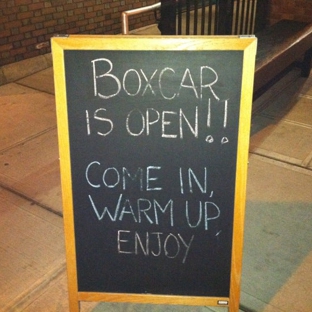 BOXCAR
IS OPEN!!
COME IN,
WARM UP,
ENJOY